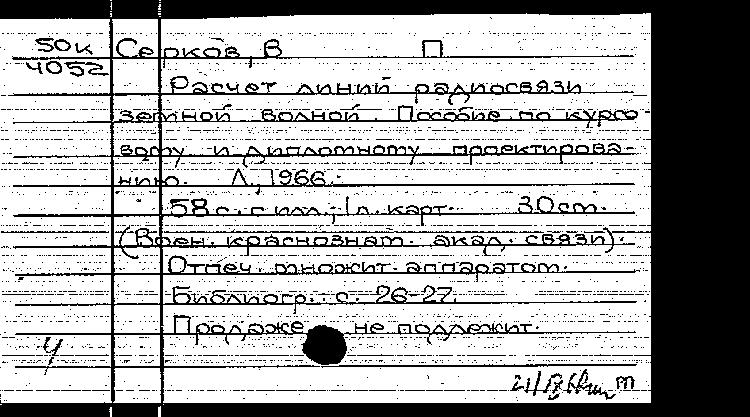 50к Серков, В П
4052
Расчет линий радиосвязи
земной волной. Пособие по курсо-
вому и дипломному проектирова-
нию. Л., 1966.
58 с. с илл.; 1 л. карт. 30 cm.
(Воен. краснознам. акад. связи).
Отпеч. множит. аппаратом.
Библиогр.: с. 26-27.
Продаже не подлежит.
Ч
21/
m